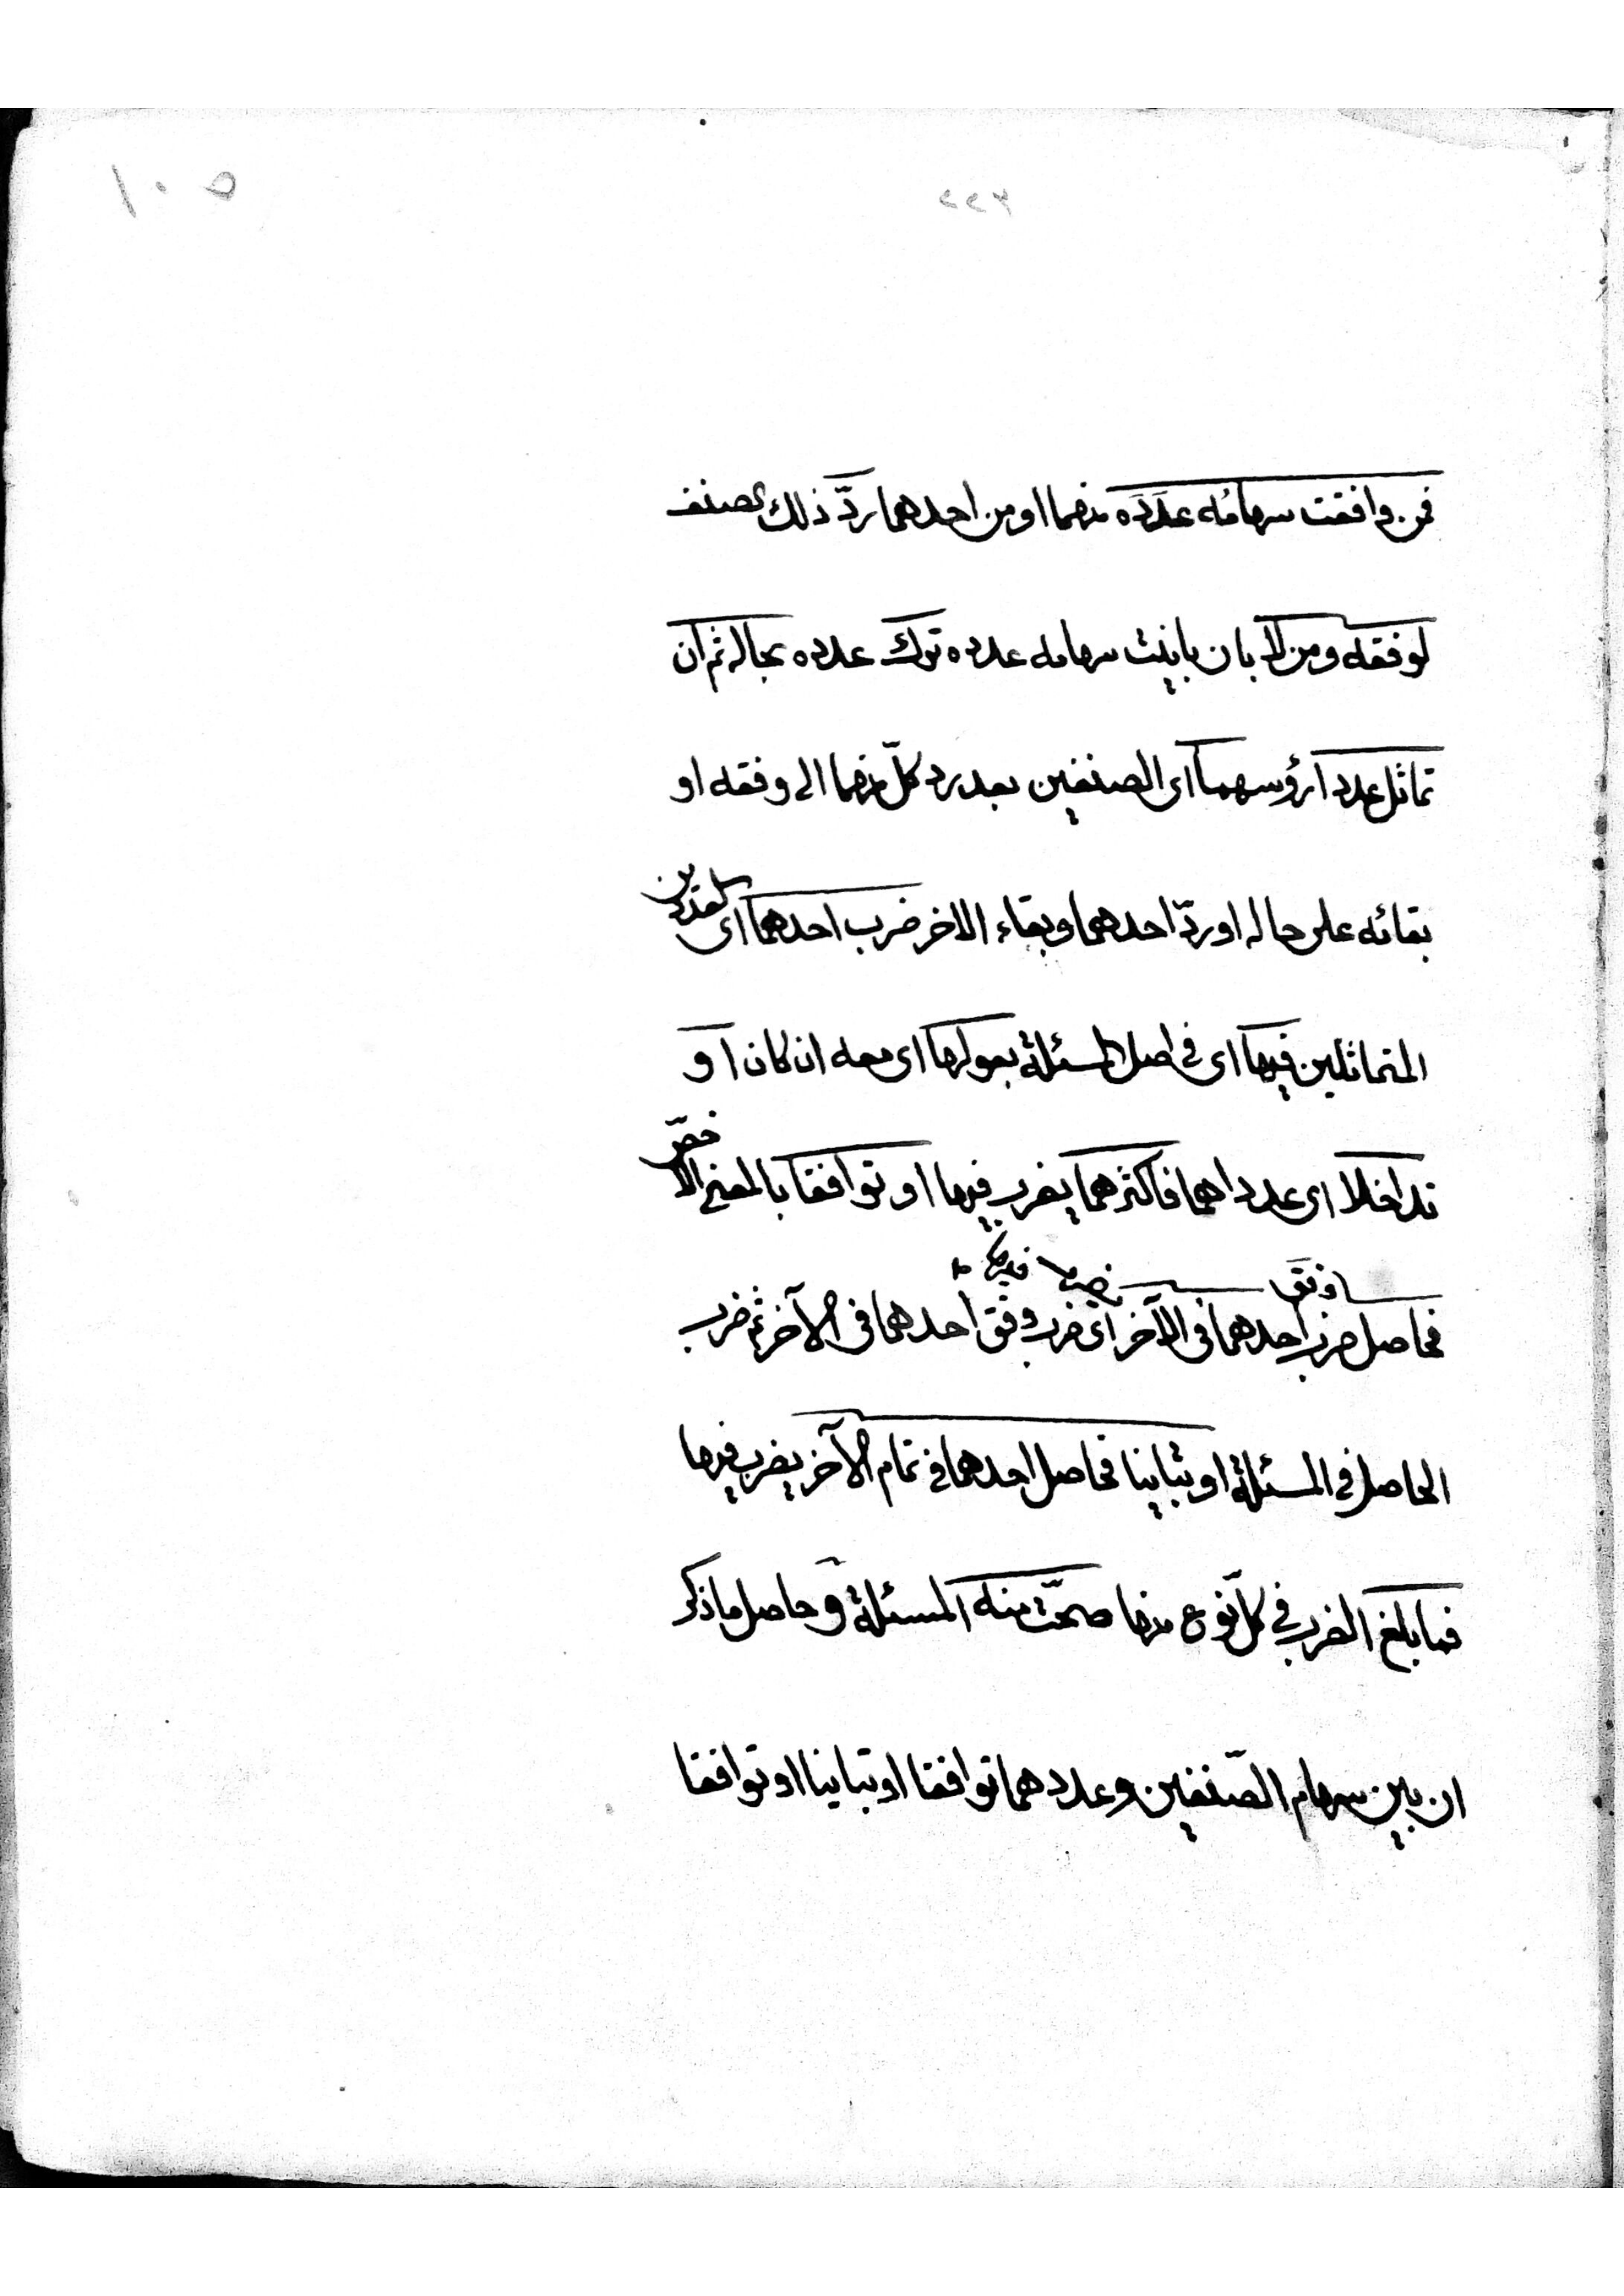 ١٠٥
٢٢٣
فمن وافقت سهامُه عدَدَه منهما او من احدهما ردّ ذلك الصنف
لوفقه ومن لا بان باينت سهامه عدده ترك عدده بحاله ثم ان
تماثل عددا رؤسهما اى الصنفين بعد رد كلّ منهما الى وفقه او
بقائه على حاله او ردّ احدهما وبقاء الاخر ضرب احدهما اى العددين
المتماثلين فيها اى فى اصل المسئلة بعولها اى معه ان كان او
تداخلا اى عدداهما فاكثرهما يضرب فيها او توافقا بالمعنى الاخصّ
وفق
يضرب فيها
فحاصل ضرب احدهما فى الآخر اى ضرب وفق احدهما فى الآخر ثم ضرب
الحاصل فى المسئلة او تباينا فحاصل احدهما فى تمام الآخر يضرب فيها
فما بلغ الضرب فى كل نوع منها صحّت منه المسئلة و حاصل ما ذكر
ان بين سهام الصّنفين وعددهما توافقا او تباينا او توافقا